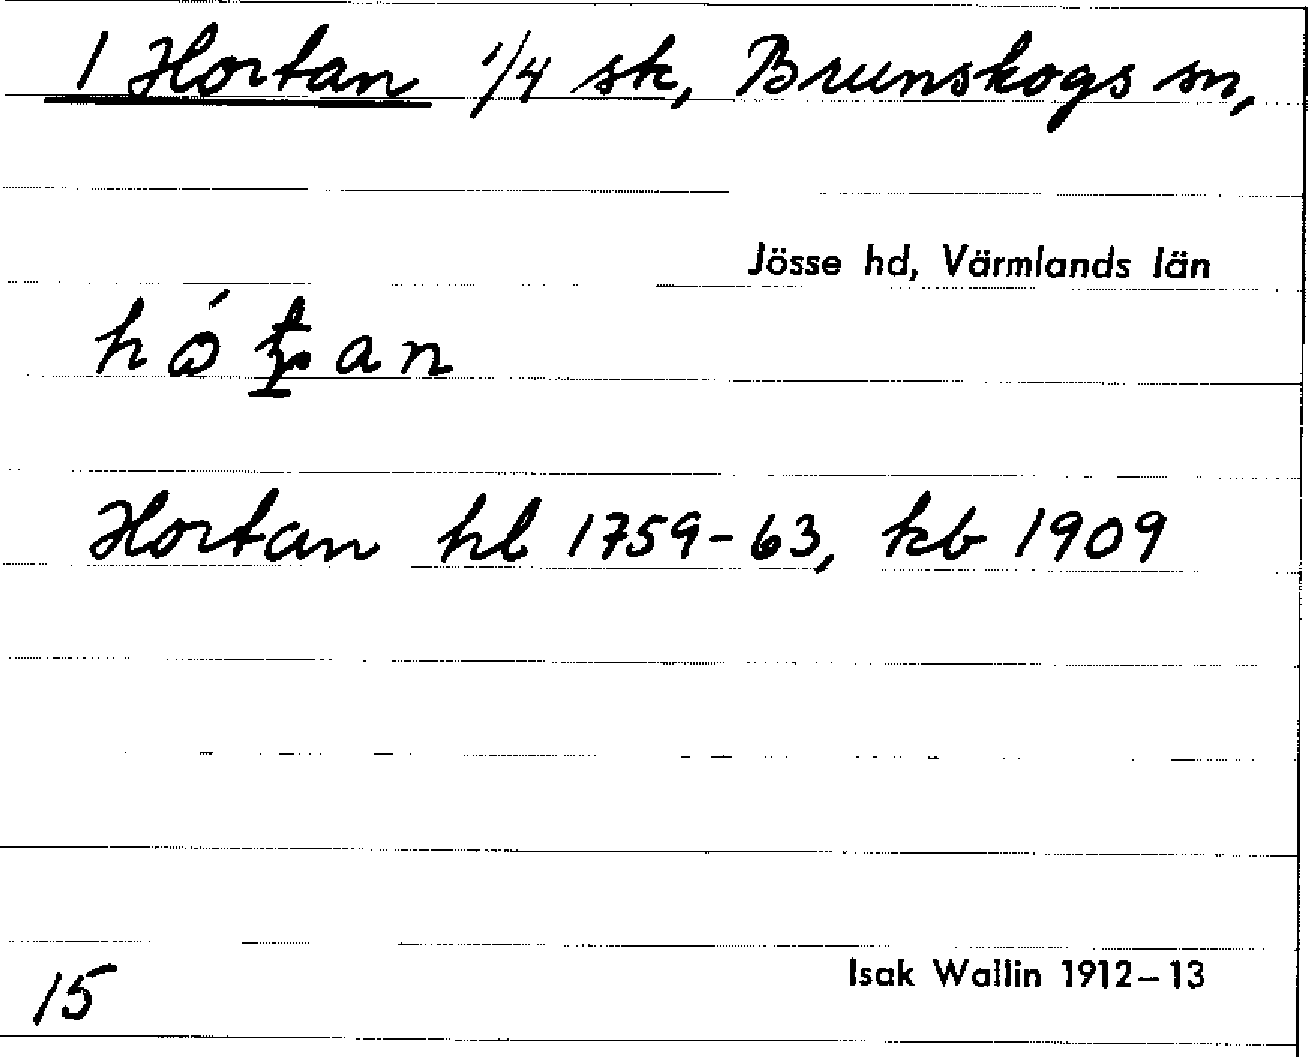 1 Hortan 1/4 sk, Brunskogs sn,
Jösse hd, Värmlands län
Hortan hl 1759-63, kb 1909
Isak Wallin 1912–13
15